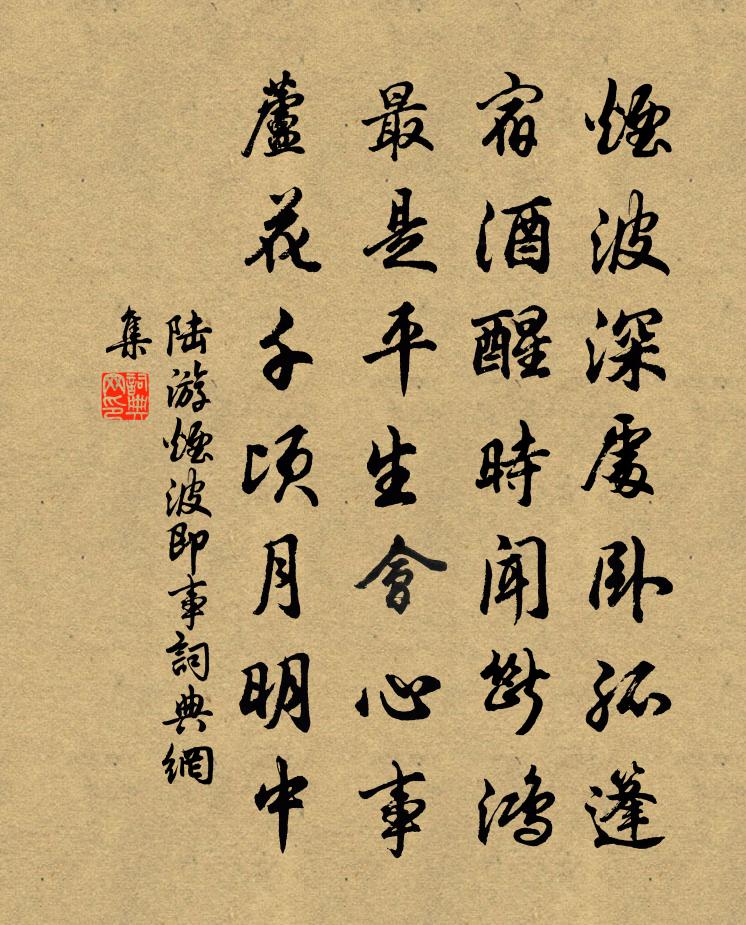 煙波深處臥孤蓬
宿酒醒時聞斷鴻
最是平生會心事
蘆花千頃月明中
陸游煙波即事詞典網
集
詞典網印